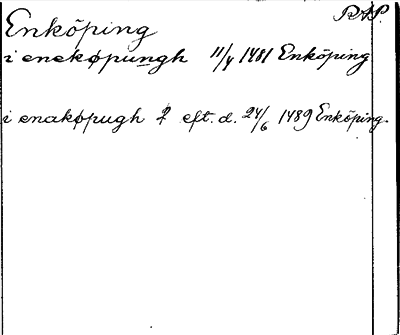 RAP.
Enköping
i enekøpungh 11/4 1481 Enköping
i enakøpugh 2 eft. d. 24/6 1489 Enköping